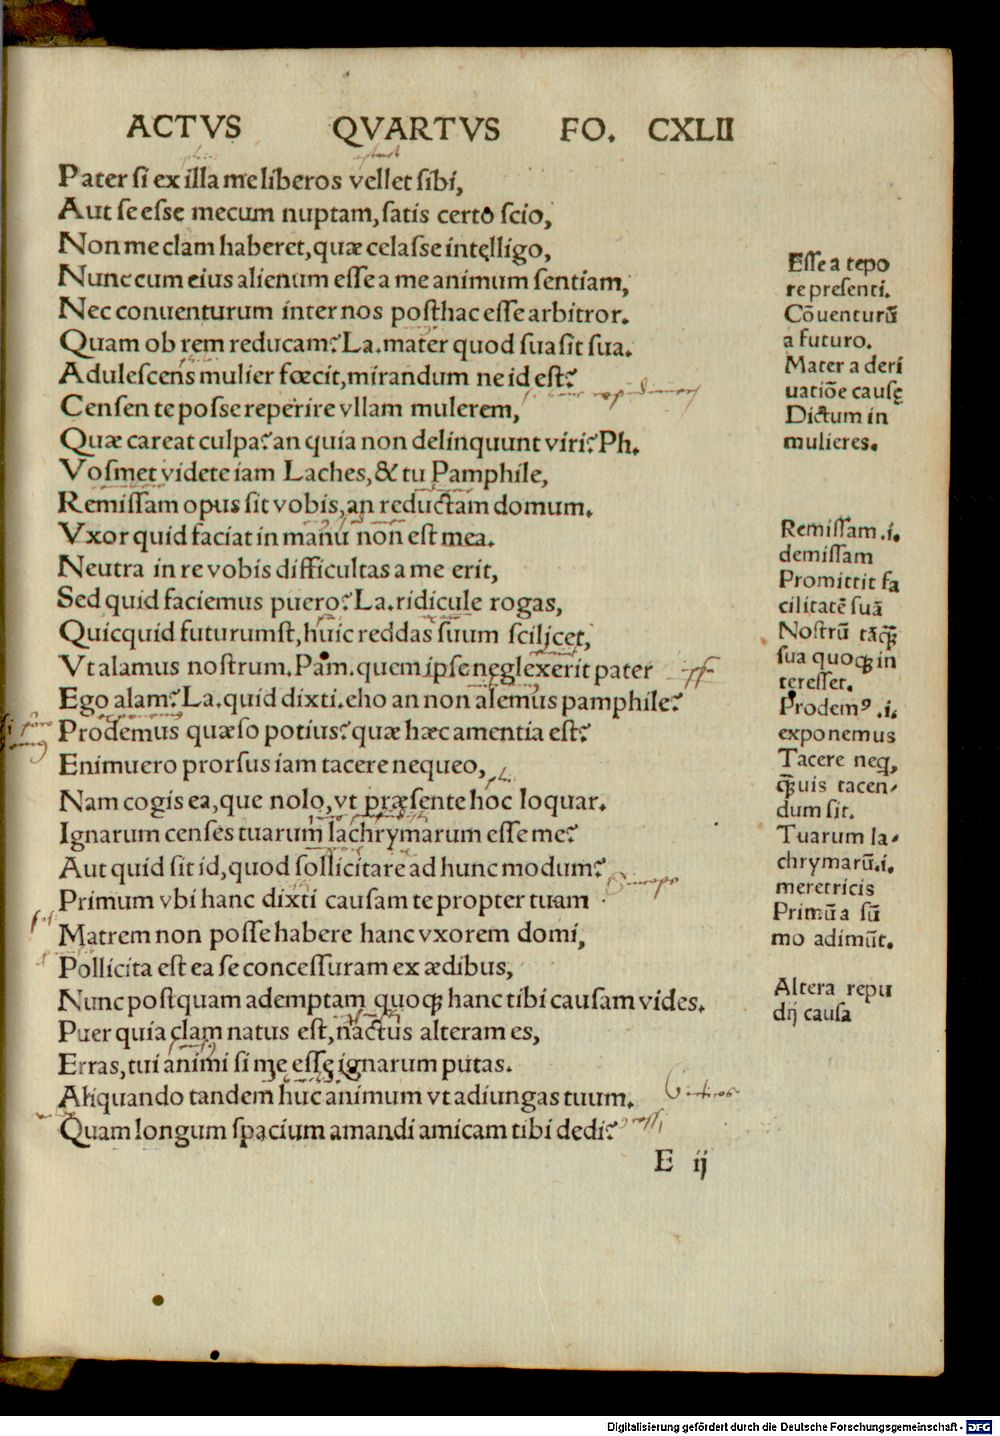 ACTVS QVARTVS FO. CXLII
Pater si ex illa me liberos vellet sibi,
Aut se esse mecum nuptam, satis certo scio,
Non me clam haberet, quæ celasse intęlligo,
Nunc cum eius alienum esse a me animum sentiam,
Nec conuenturum inter nos posthac esse arbitror.
Quam ob rem reducam? La. mater quod suasit sua.
Adulescens mulier fœcit, mirandum ne id est?
Censen te posse reperire vllam mulerem,
Quæ careat culpa? an quia non delinquunt viri? Ph.
Vosmet videte iam Laches, & tu Pamphile,
Remissam opus sit vobis, an reductam domum.
Vxor quid faciat in manu non est mea.
Neutra in re vobis difficultas a me erit,
Sed quid faciemus puero? La. ridicule rogas,
Quicquid futurumst, huic reddas suum scilicet,
Vt alamus nostrum. Pam. quem ipse neglexerit pater
Ego alam? La. quid dixti. eho an non alemus pamphile?
Prodemus quæso potius? quæ hæc amentia est?
Enimuero prorsus iam tacere nequeo,
Nam cogis ea, que nolo, vt præsente hoc loquar.
Ignarum censes tuarum lachrymarum esse me?
Aut quid sit id, quod sollicitare ad hunc modum?
Primum vbi hanc dixti causam te propter tuam
Matrem non posse habere hanc vxorem domi,
Pollicita est ea se concessuram ex ædibus,
Nunc postquam ademptam quoqȝ hanc tibi causam vides.
Puer quia clam natus est, nactus alteram es,
Erras, tui animi si me essę ignarum putas.
Aliquando tandem huc animum vt adiungas tuum.
Quam longum spacium amandi amicam tibi dedi?
E ij
Esse a tēpo
re presenti.
Cōuenturū
a futuro.
Mater a deri
uatiōe causę
Dictum in
mulieres.
Remissam .i.
demissam
Promittit fa
cilitatē suā
Nostrū tāq̃ȝ
sua quoqȝ in
teresset.
Prodemꝰ .i.
exponemus
Tacere neq,
q̃ȝuis tacen-
dum sit.
Tuarum la-
chrymarū.i.
meretricis
Primū a sū
mo adimūt.
Altera repu
dij causa
Digitalisierung gefördert durch die Deutsche Forschungsgemeinschaft - DFG